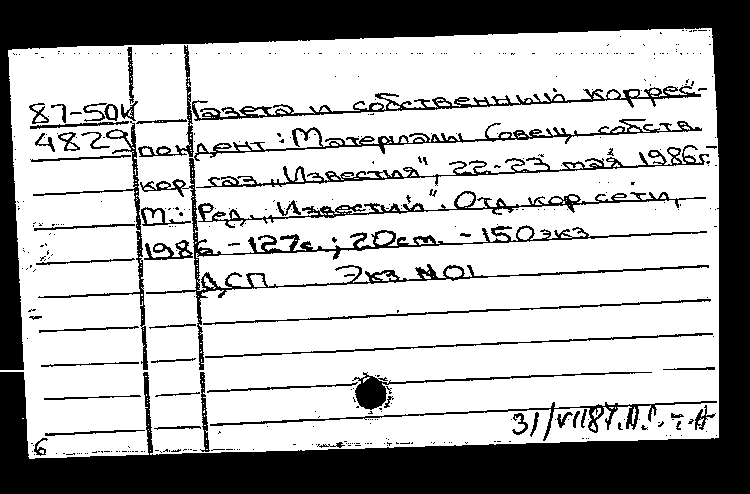 87-50к Газета и собственный коррес-
4829 пондент: Материалы Совещ. собств.
кор. газ. „Известия", 22-23 мая 1986г.
М.: Ред. „Известий". Отд. кор. сети,
1986. - 127с.; 20см. - 150экз.
ДСП Экз. №01
31/VII87.
6